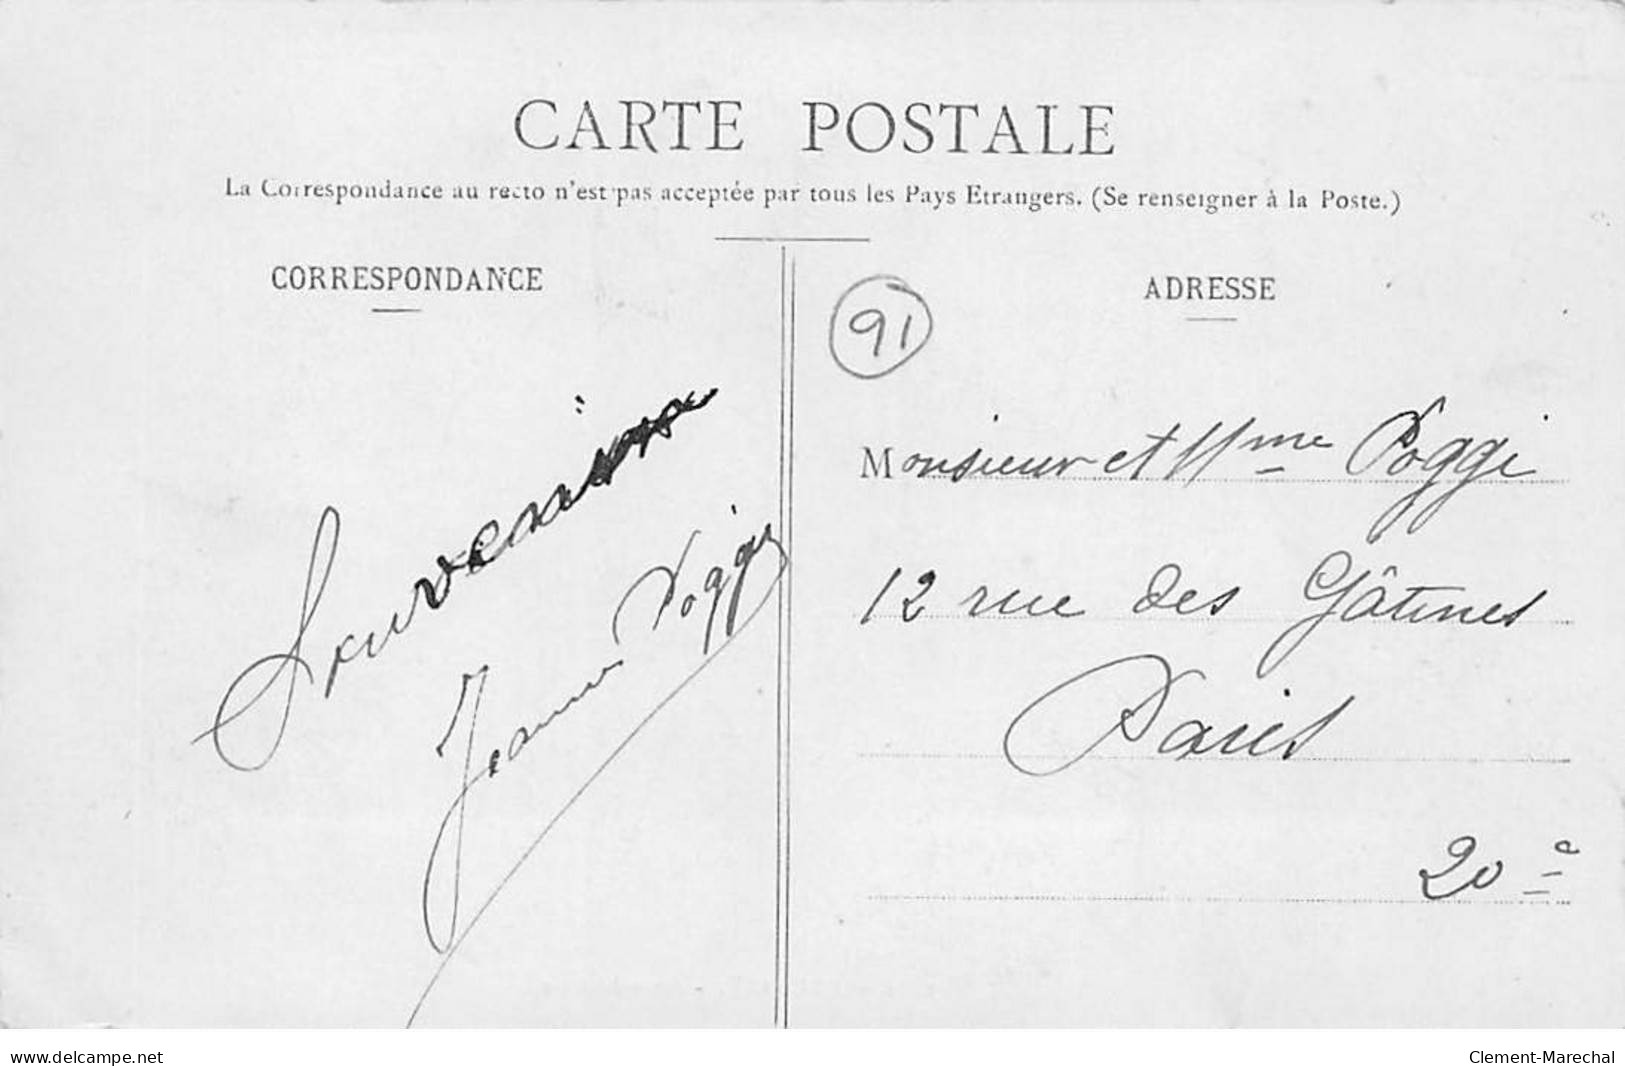 CARTE POSTALE
La Correspondance au recto n'est pas acceptée par tous les Pays Etrangers. (Se renseigner à la Poste.)
CORRESPONDANCE
Souvenir
Jeanne Poggi
ADRESSE
91
Monsieur et Mme Poggi
12 rue des Gâtines
Paris
20e
www.delcampe.net
Clement-Marechal